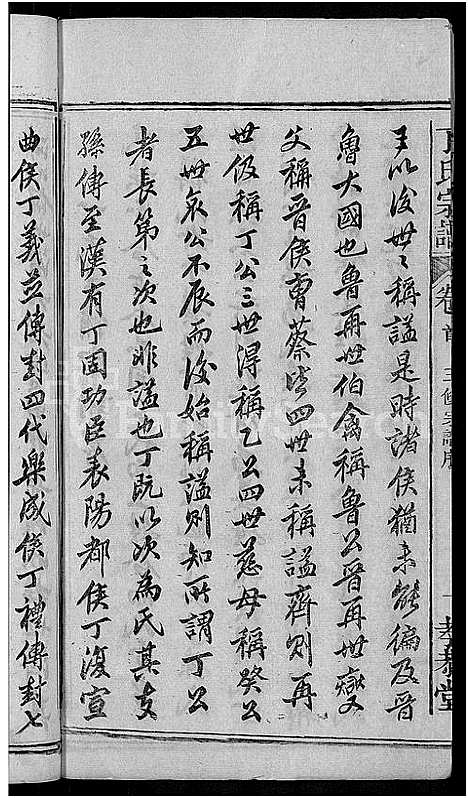 丁氏宗譜 卷首 三修宗譜序 一 孝恭堂
王以後世之稱謚是時諸侯猶未能徧及晋
魯大國也魯再世伯禽稱魯公晋再世燮
父稱晋侯曹蔡皆四世未稱謚齊則再
世伋稱丁公三世得稱乙公四世慈母稱癸公
五世哀公不辰而後始稱謚則知所謂丁公
者長第之次也非謚也丁既以次為氏其支
孫傳至漢有丁固功臣表陽都侯丁復宣
曲侯丁義並傳封四代樂成侯丁禮傳封七